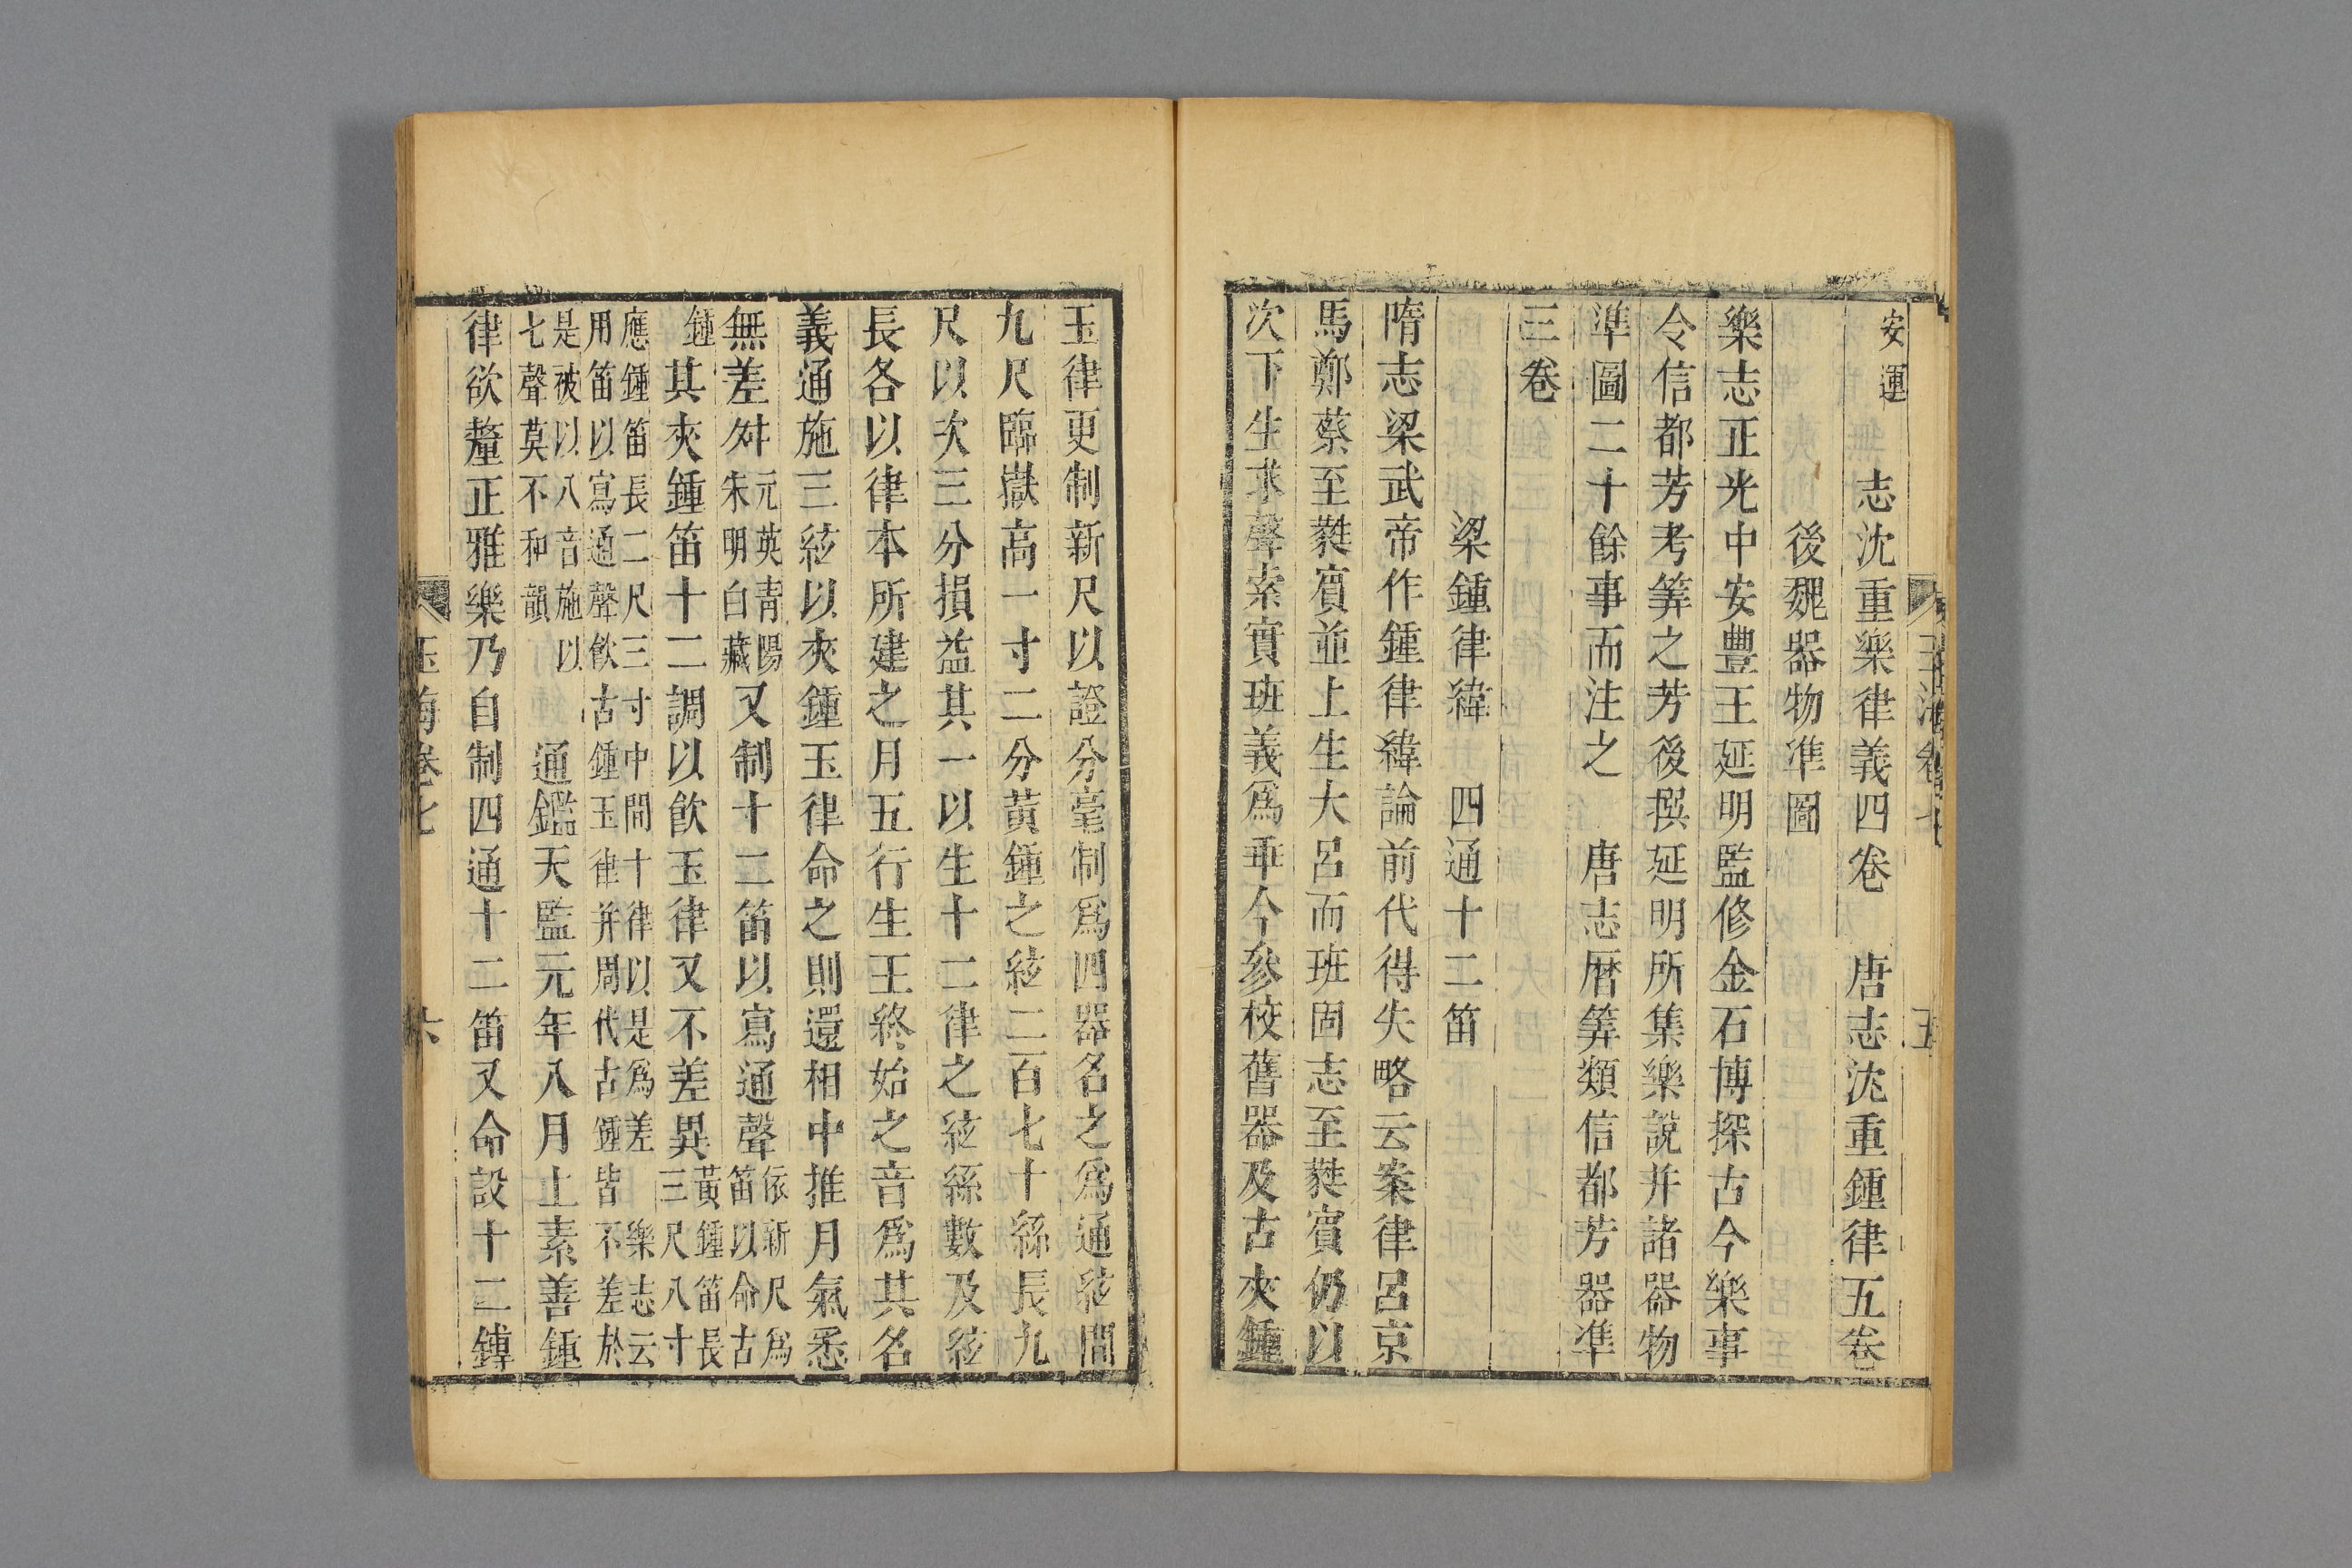 玉海卷七 五
安運 志沈重樂律義四卷 唐志沈重鍾律五卷
後魏器物準圖
樂志正光中安豐王延明監修金石博探古今樂事
令信都芳考筭之芳後撰延明所集樂說并諸器物
準圖二十餘事而注之 唐志曆筭類信都芳器準
三卷
梁鍾律緯 四通十二笛
隋志梁武帝作鍾律緯論前代得失略云案律呂京
馬鄭蔡至蕤賓並上生大呂而班固志至蕤賓仍以
次下生求聲索實班義爲乖今參校舊器及古夾鍾
玉律更制新尺以證分毫制爲四器名之爲通絃間
九尺臨嶽高一寸二分黃鍾之絃二百七十絲長九
尺以次三分損益其一以生十二律之絃絲數及絃
長各以律本所建之月五行生王終始之音爲其名
義通施三絃以夾鍾玉律命之則還相中推月氣悉
無差舛元英青陽朱明白藏又制十二笛以寫通聲依新尺爲笛以命古
鍾其夾鍾笛十二調以飲玉律又不差異黃鍾笛長三尺八寸
應鍾笛長二尺三寸中間十律以是爲差 樂志云
用笛以寫通聲飲古鍾玉律并周代古鍾皆不差於
是被以八音施以
七聲莫不和韻 通鑑天監元年八月上素善鍾
律欲釐正雅樂乃自制四通十二笛又命設十二鎛
玉海卷七 六